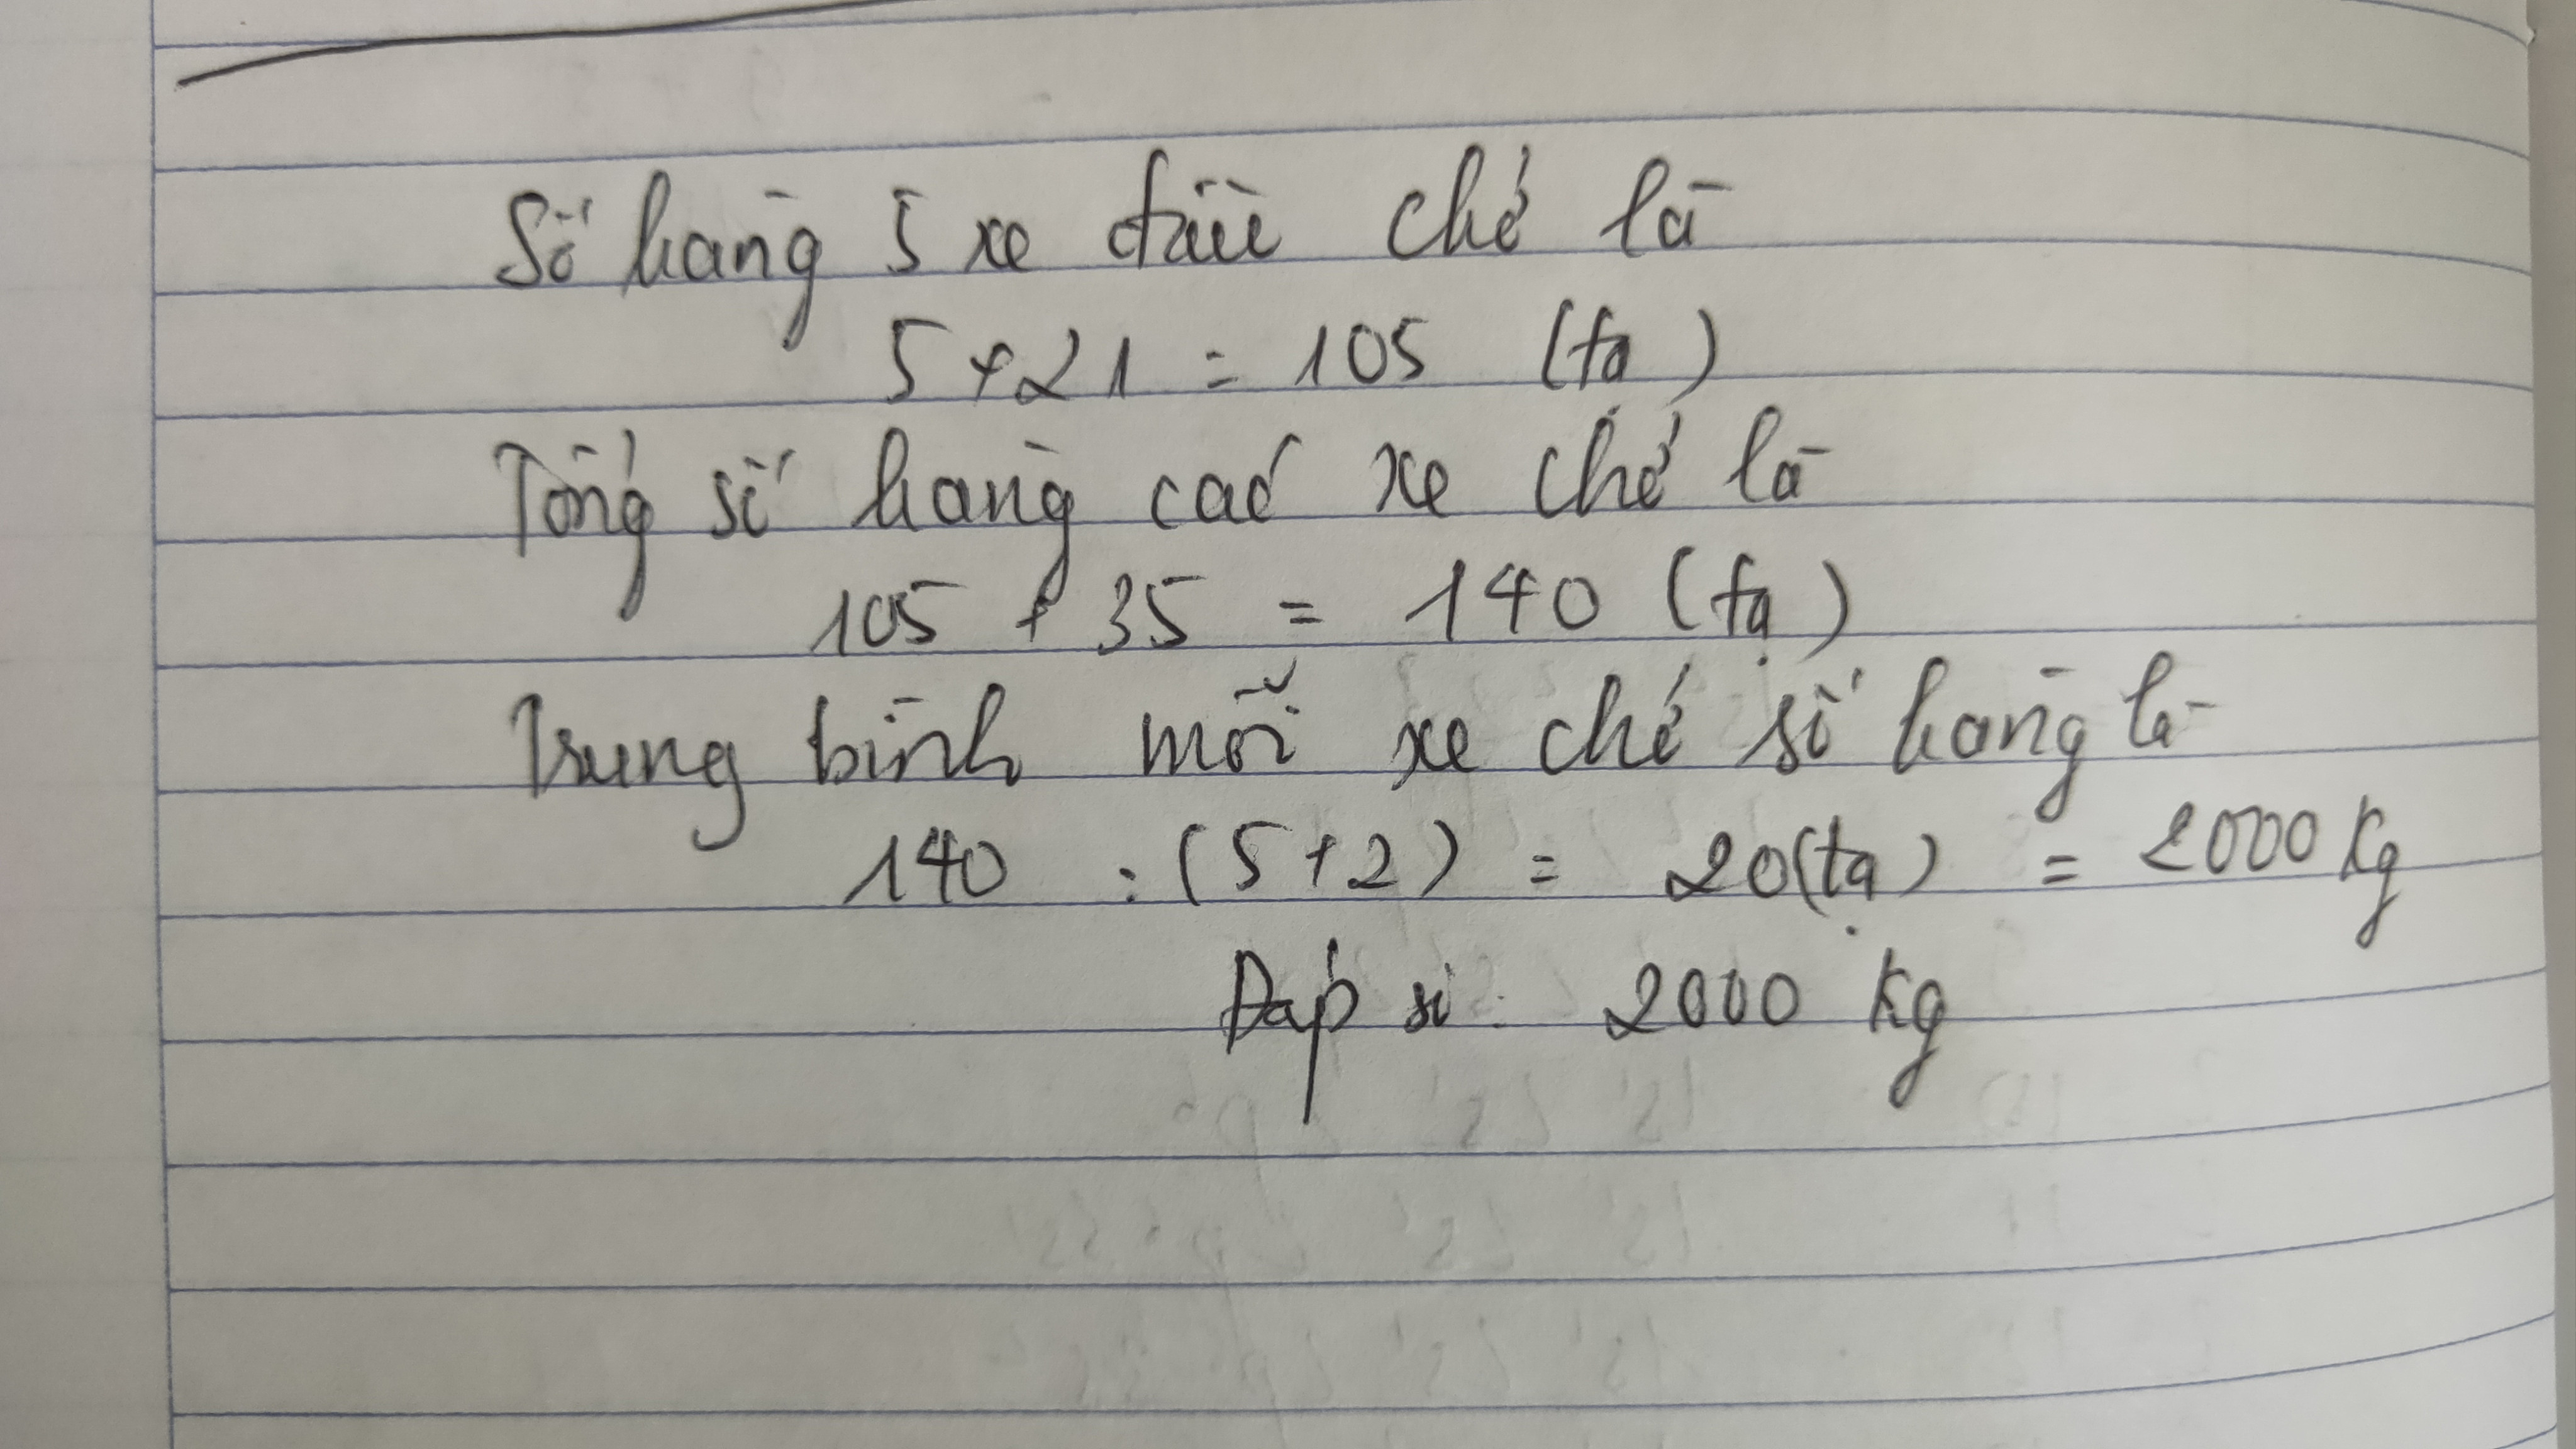 Số hàng 5 xe đầu chở là
5 × 21 = 105 (tạ)
Tổng số hàng các xe chở là
105 + 35 = 140 (tạ)
Trung bình mỗi xe chở số hàng là
140 : (5+2) = 20 (tạ) = 2000 kg
Đáp số: 2000 kg